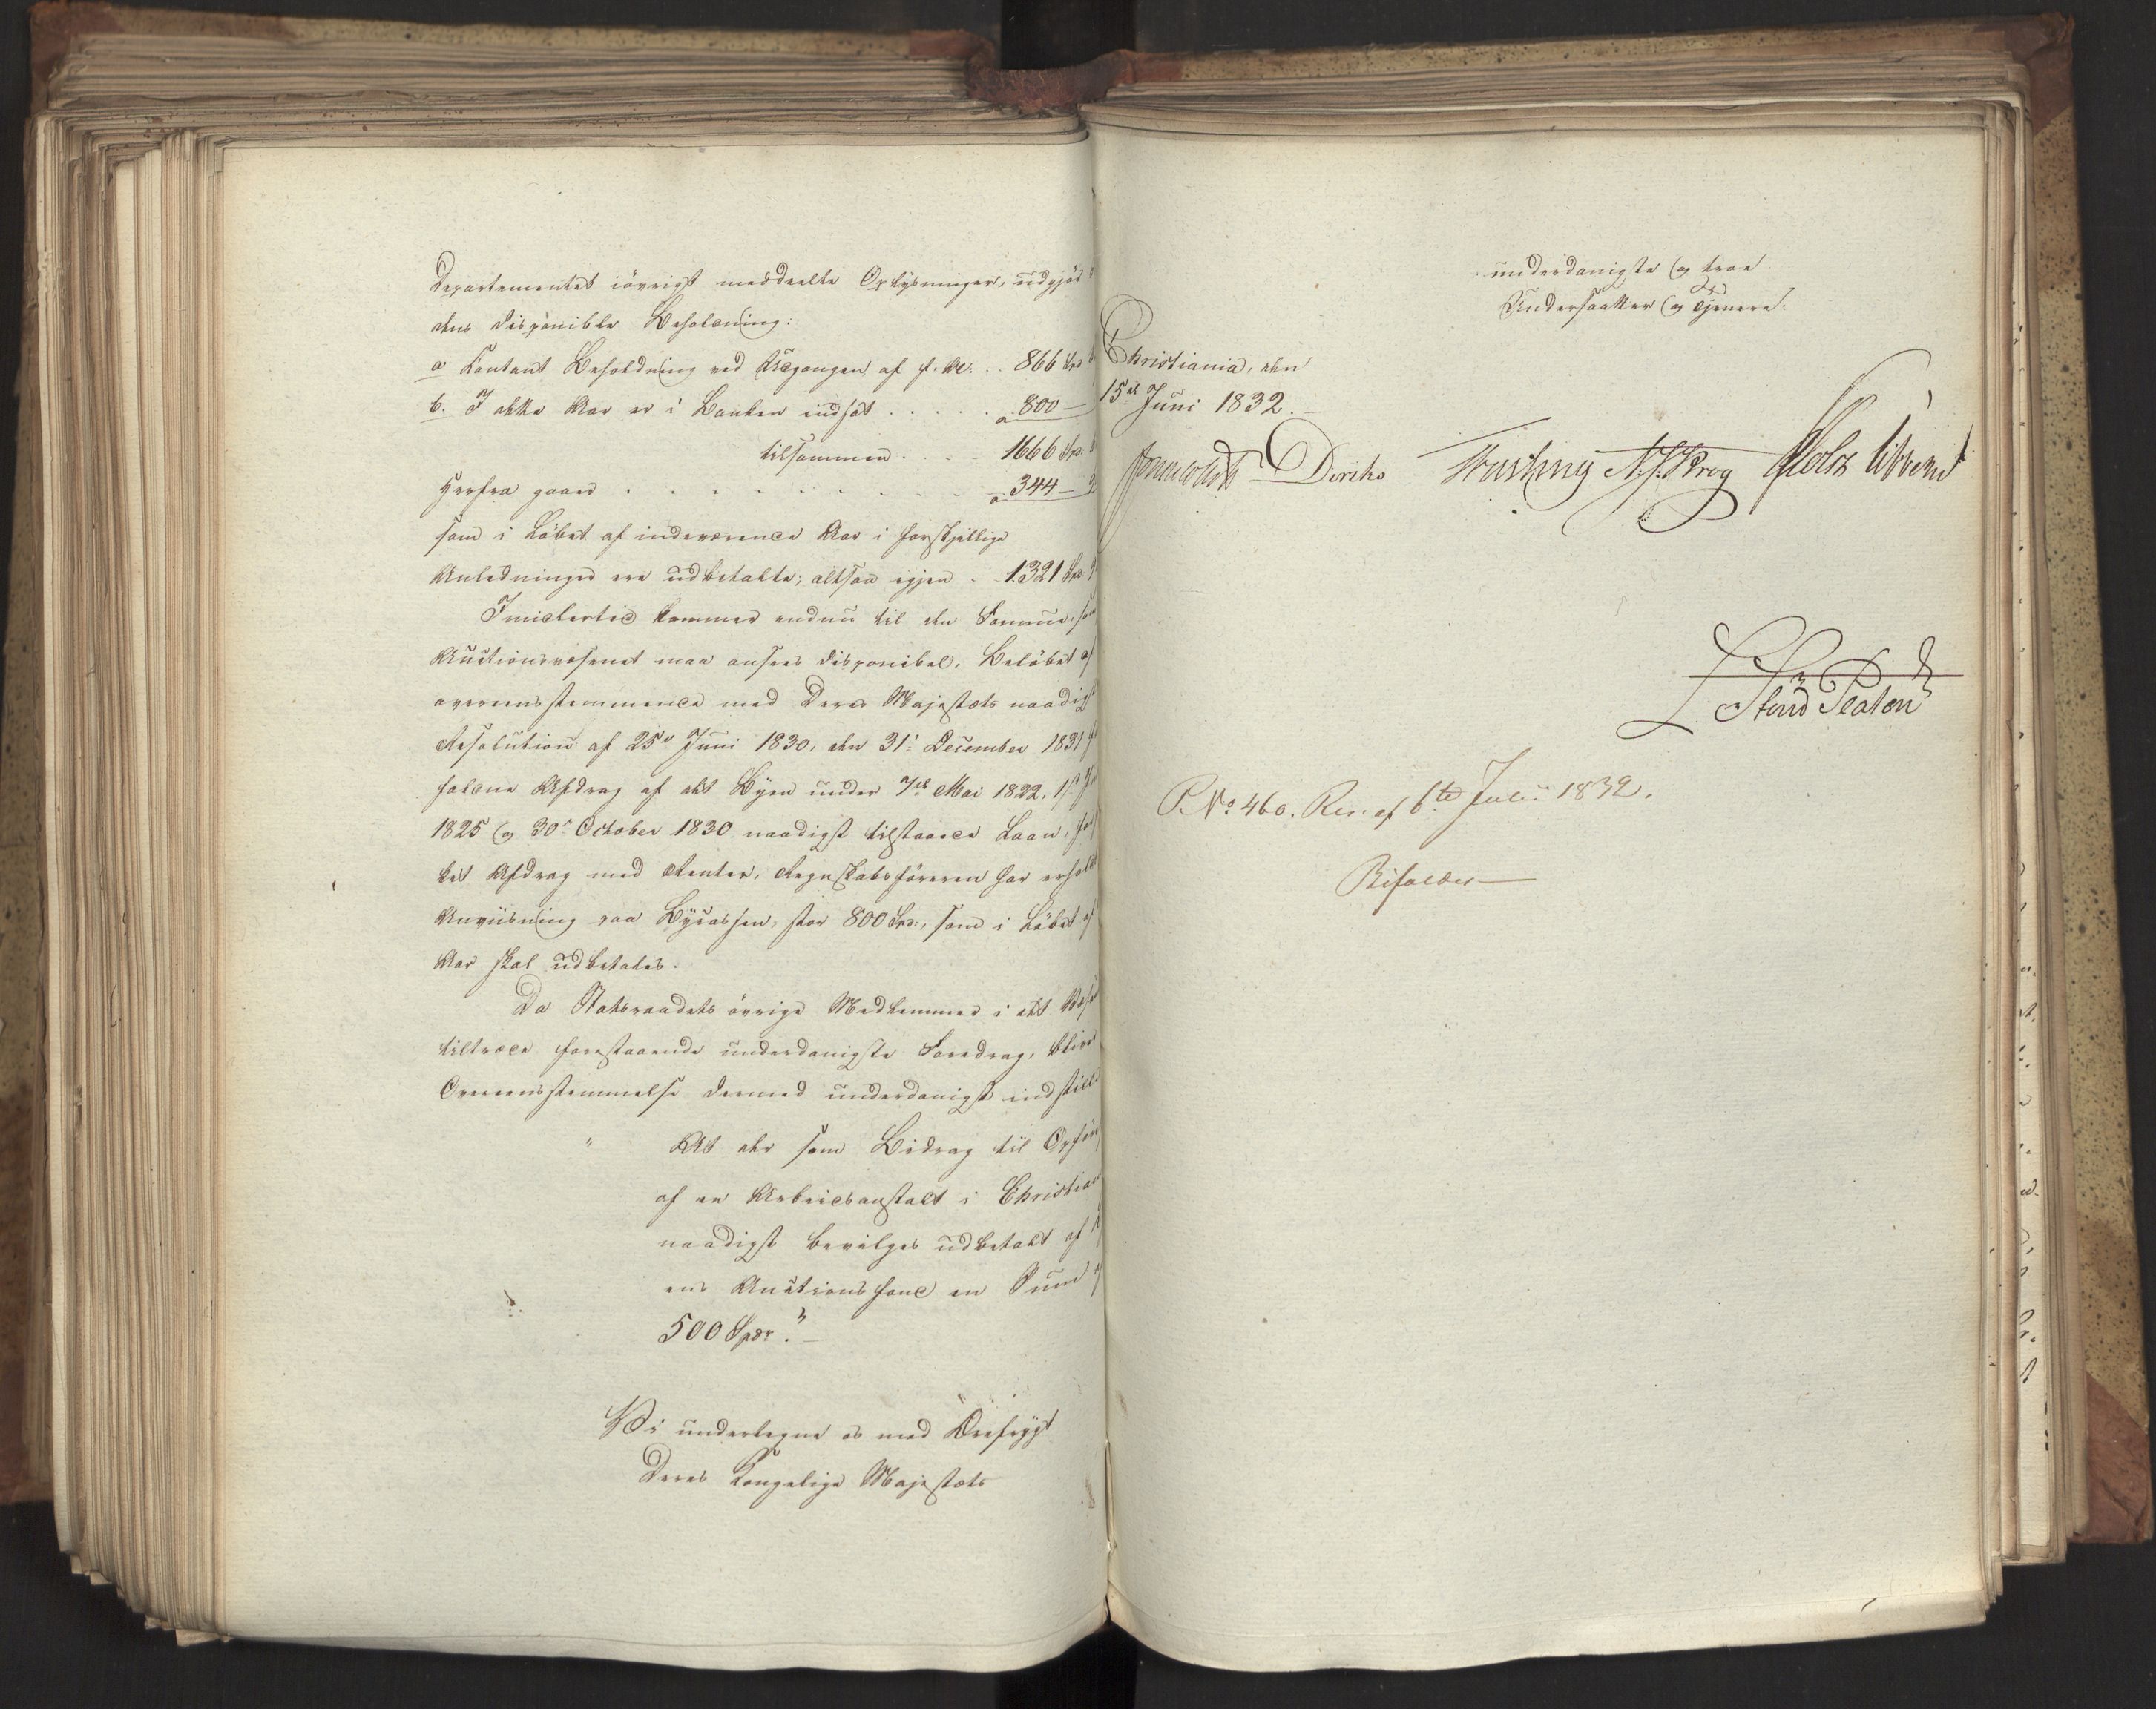 Departementet iøvrigt meddeelte Oplysninger, udgjør
dens disponible Beholdning:
a Contant Beholdning ved Udgangen af f. A. . . 866 Spd
b. I dette Aar er i Banken indsat . . . . . 800 —
tilsammen . . . . 1666 Spd
Herfra gaaer . . . . . . . . . . 344 —
som i Løbet af indeværende Aar i forskjellige
Anledninger ere udbetalte; altsaa igjen . 1321 Spd
Imidlertid kommer endnu til den Summa, som
Auctionsvæsenet maa ansees disponibel, Beløbet af
overeensstemmende med Deres Majestæts naadigst
Resolution af 25de Juni 1830, den 31te December 1831
faldne Afdrag af det Byen under 7de Mai 1822, 1ste
1825 og 30te October 1830 naadigst tilstaaede Laan,
ket Afdrag med Renter, Regnskabsføreren har erholdt
Anviisning paa Bycassen, stor 800 Spd:, som i Løbet af
Aar skal udbetales.
Da Statsraadets øvrige Medlemmer i det
tiltræde forestaaende underdanigste Foredrag, bliver
Overeensstemmelse dermed underdanigst indstillet
" At der som Bidrag til
af en Arbeidsanstalt i Christian
naadigst bevilges udbetalt af
ens Auctionsfond en Sum af
500 Spdr." —
Vi undertegne os med Ærefrygt
Deres Kongelige Majestæts
underdanigste og troe
Undersaatter og Tjenere:
Christiania, den
15de Juni 1832. —
Diriks N. J. Krog Holst Vibe
P. No. 460. Res. af 6te Julii 1832.
Bifaldes —